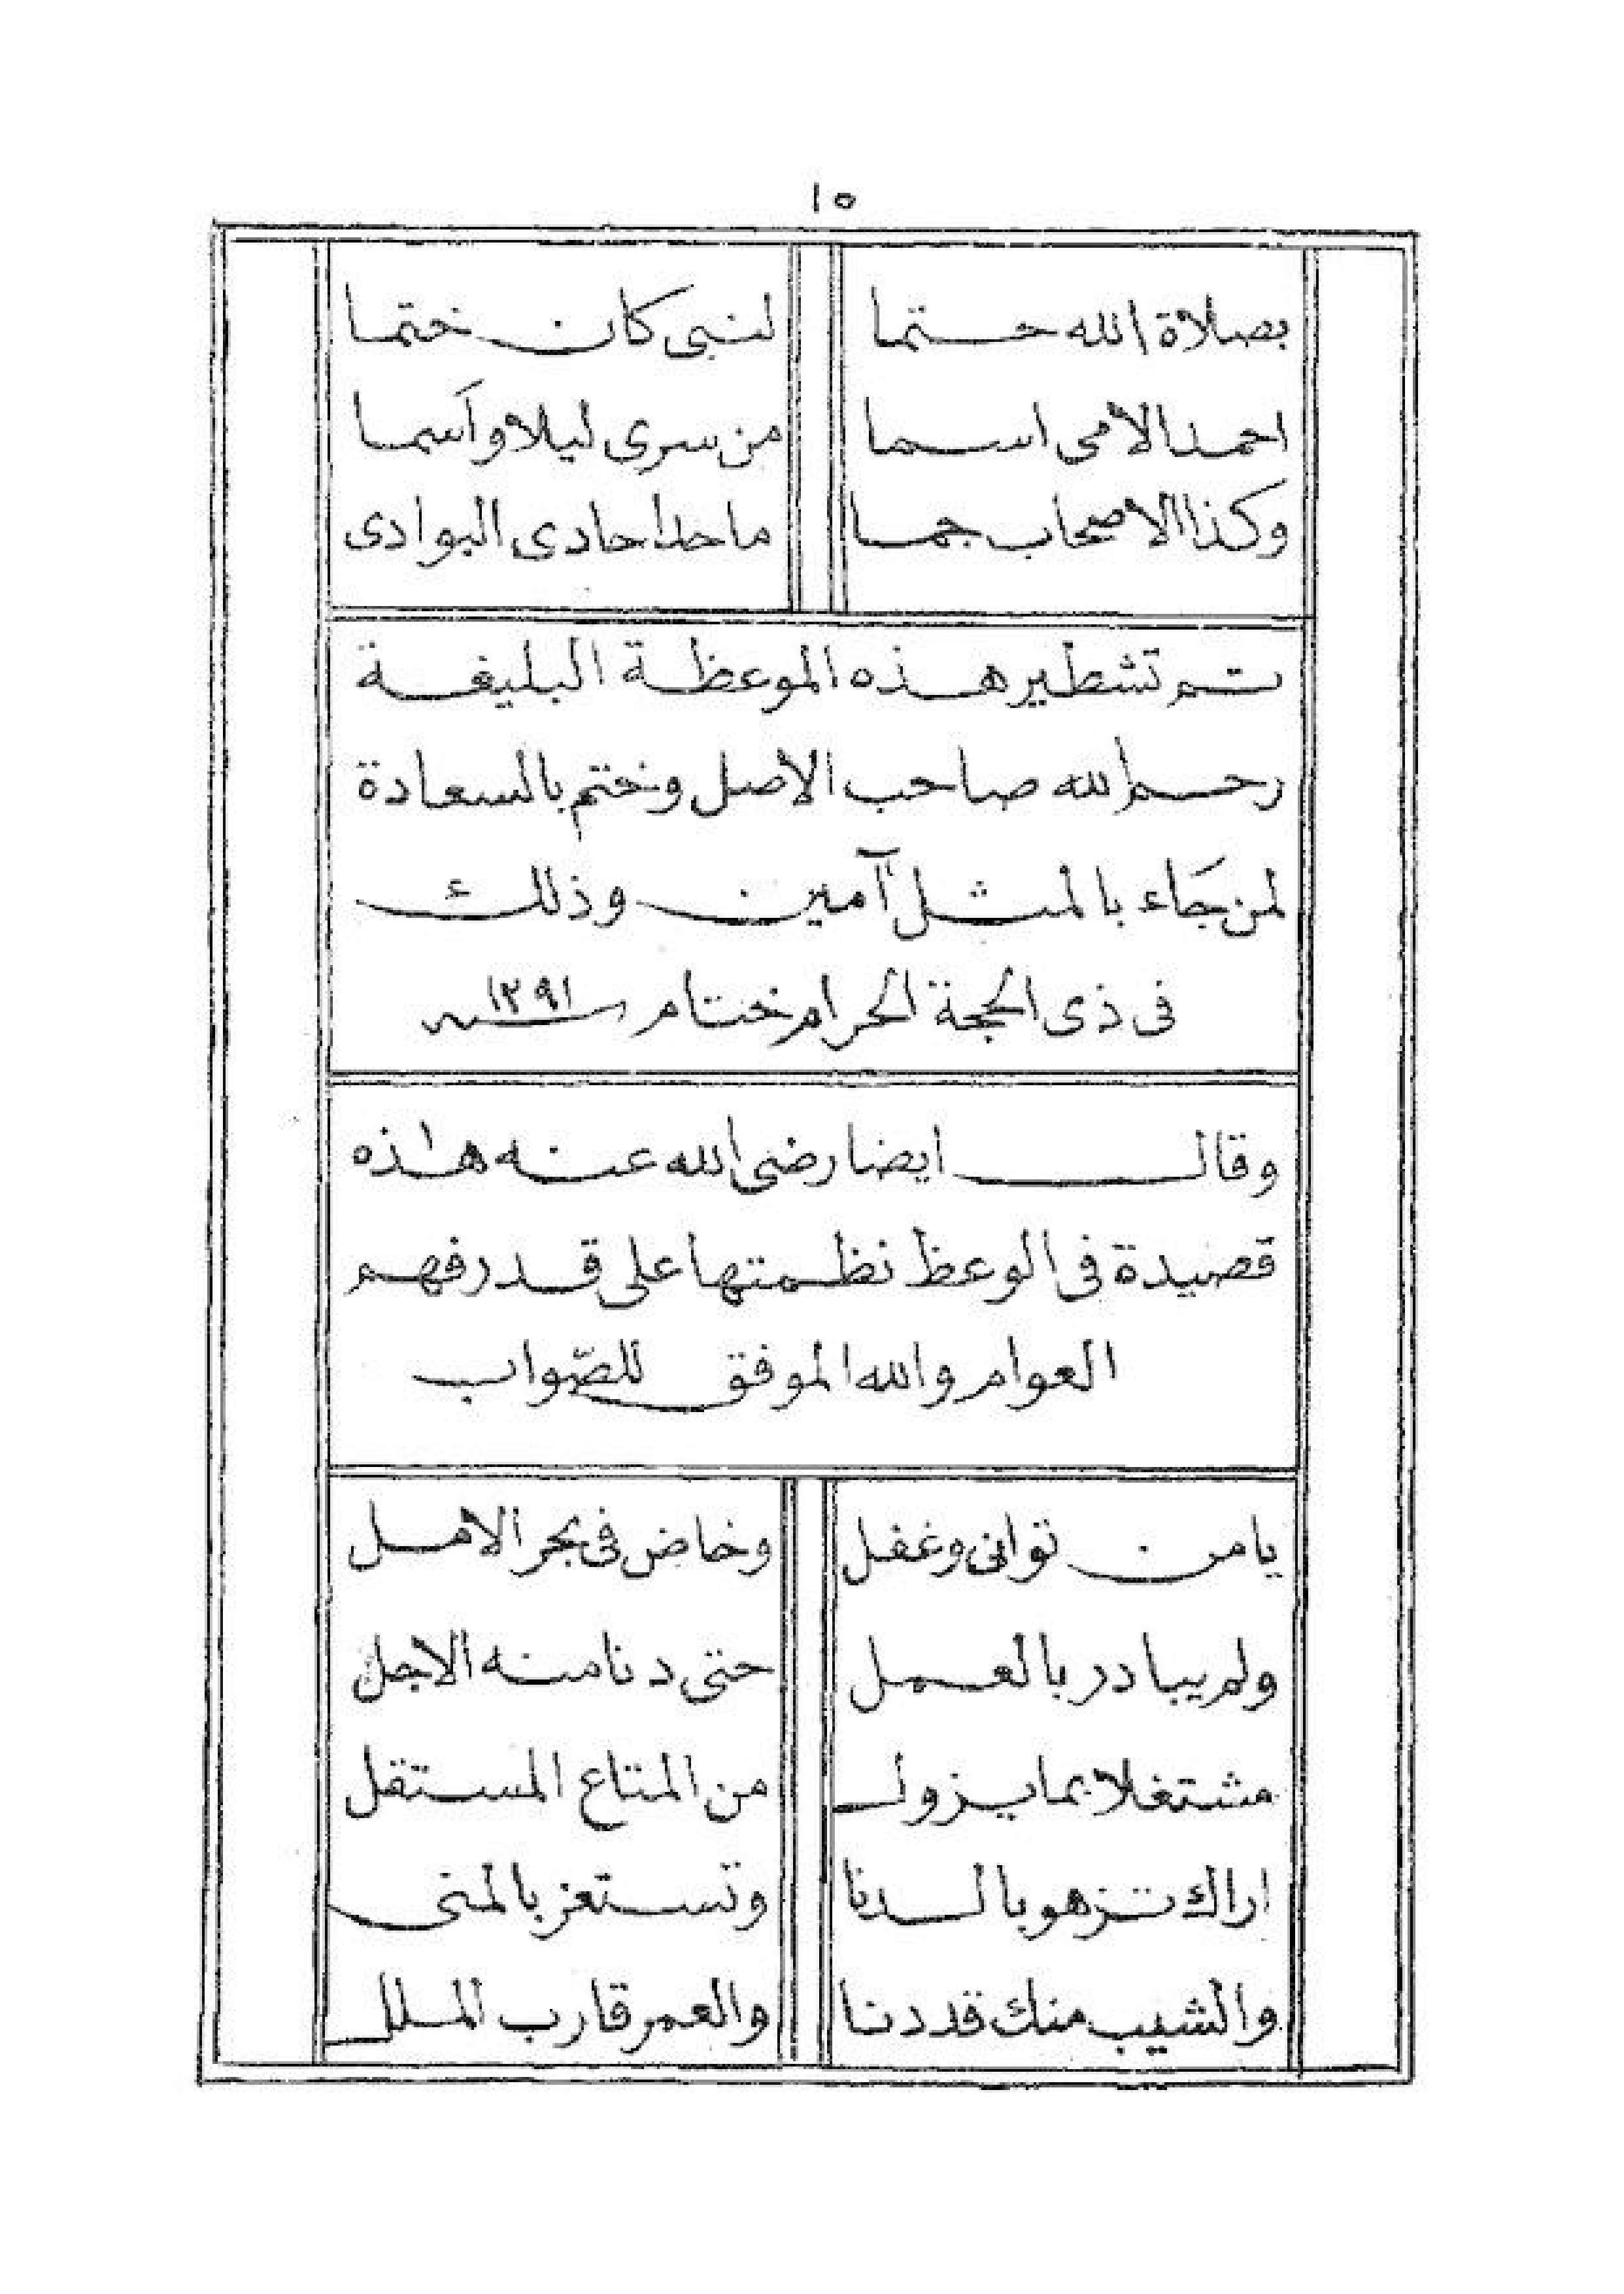 ١٥
بصلاة الله حتما لنبى كان ختما
احمد الامى اسما من سرى ليلا وأسما
وكذا الاصحاب جمعا ماحدا حادى البوادى
تم تشطير هذه الموعظة البليغة
رحم الله صاحب الاصل وختم بالسعادة
لمن جَاء بالمثل آمين وذلك
فى ذى الحجة الحرام ختام سنة ١٢٩١
وقال ايضا رضى الله عنه هذه
قصيدة فى الوعظ نظمتها على قدر فهم
العوام والله الموفق للصّواب
يا من توانى وغفل وخاض فى بحر الامل
ولم يبادر بالعمل حتى دنا منه الاجل
مشتغلا بما يزول من المتاع المستقل
اراك تزهو بالدنا وتستعز بالمنى
والشيب منك قد دنا والعمر قارب الملل